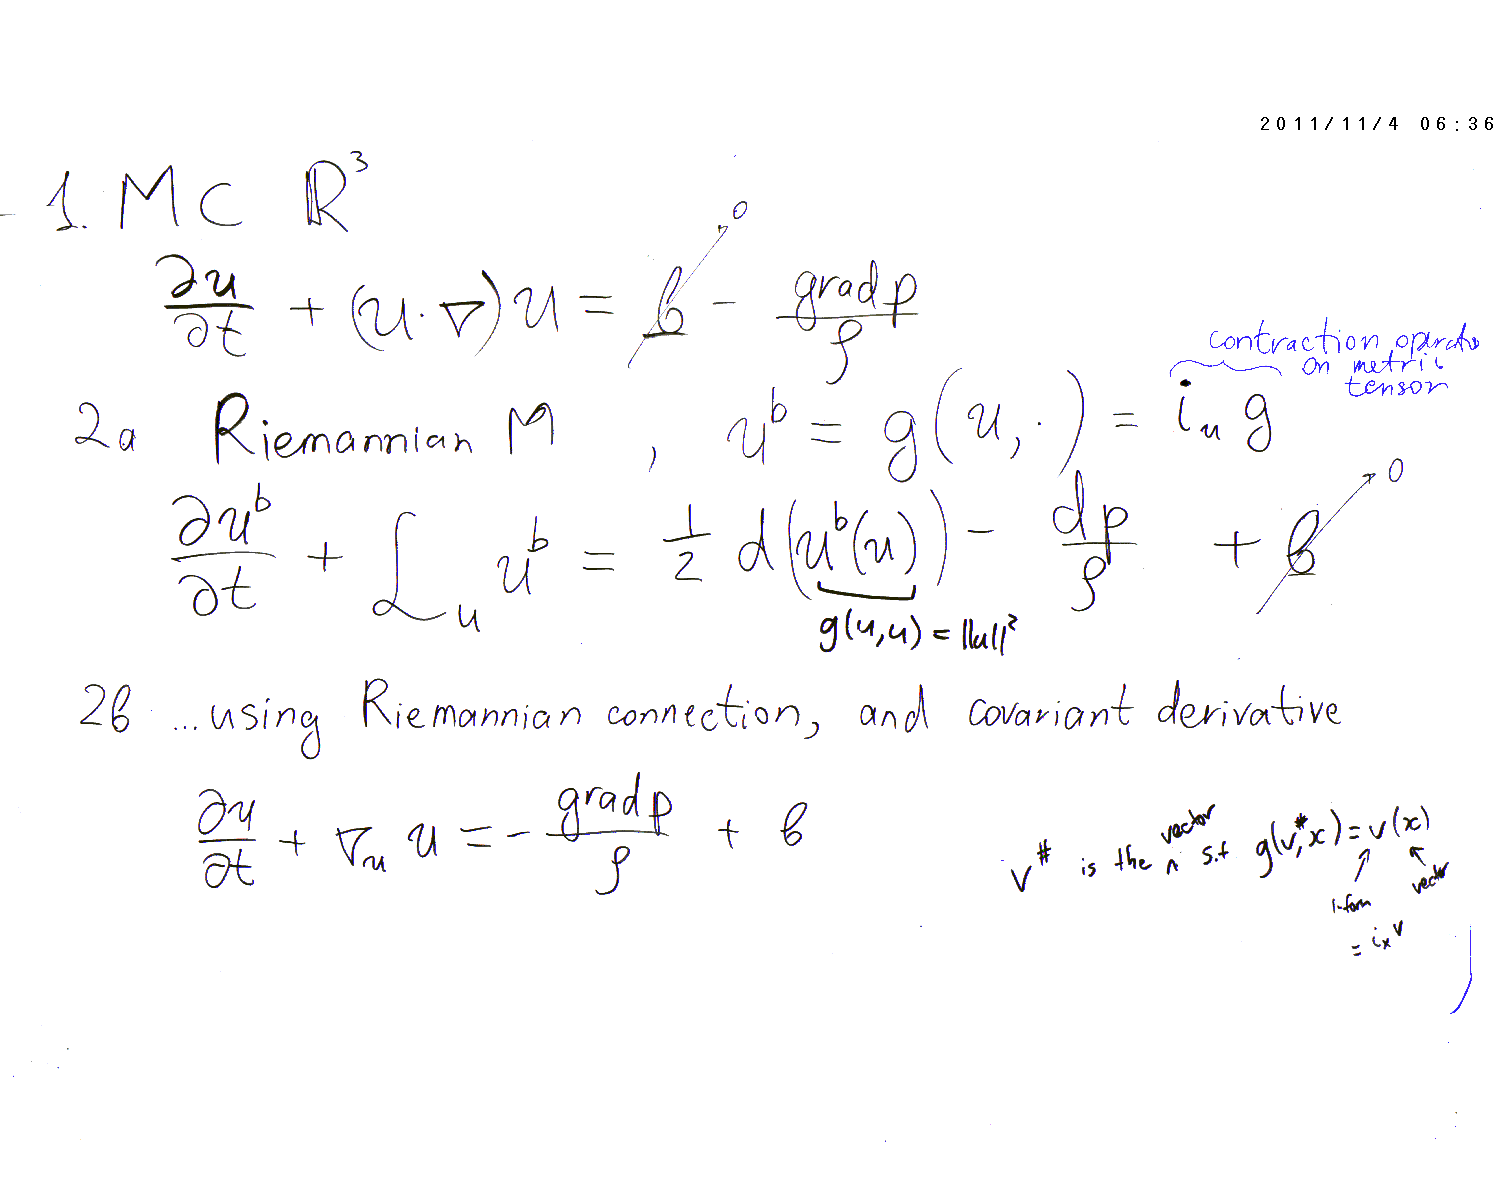 2011/11/4 06:36
1. M ⊂ ℝ³
∂u/∂t + (u·∇)u = b → 0 − grad p/ρ
contraction operato
on metric
tensor
2a Riemannian M, u^b = g(u,·) = i_u g
∂u^b/∂t + ℒ_u u^b = 1/2 d(u^b(u)) − dp/ρ + b → 0
g(u,u) = ||u||²
2b ...using Riemannian connection, and covariant derivative
∂u/∂t + ∇_u u = − grad p/ρ + b
v^# is the ^ vector s.t g(v^#, x) = v(x)
1-form
vector
= i_x v